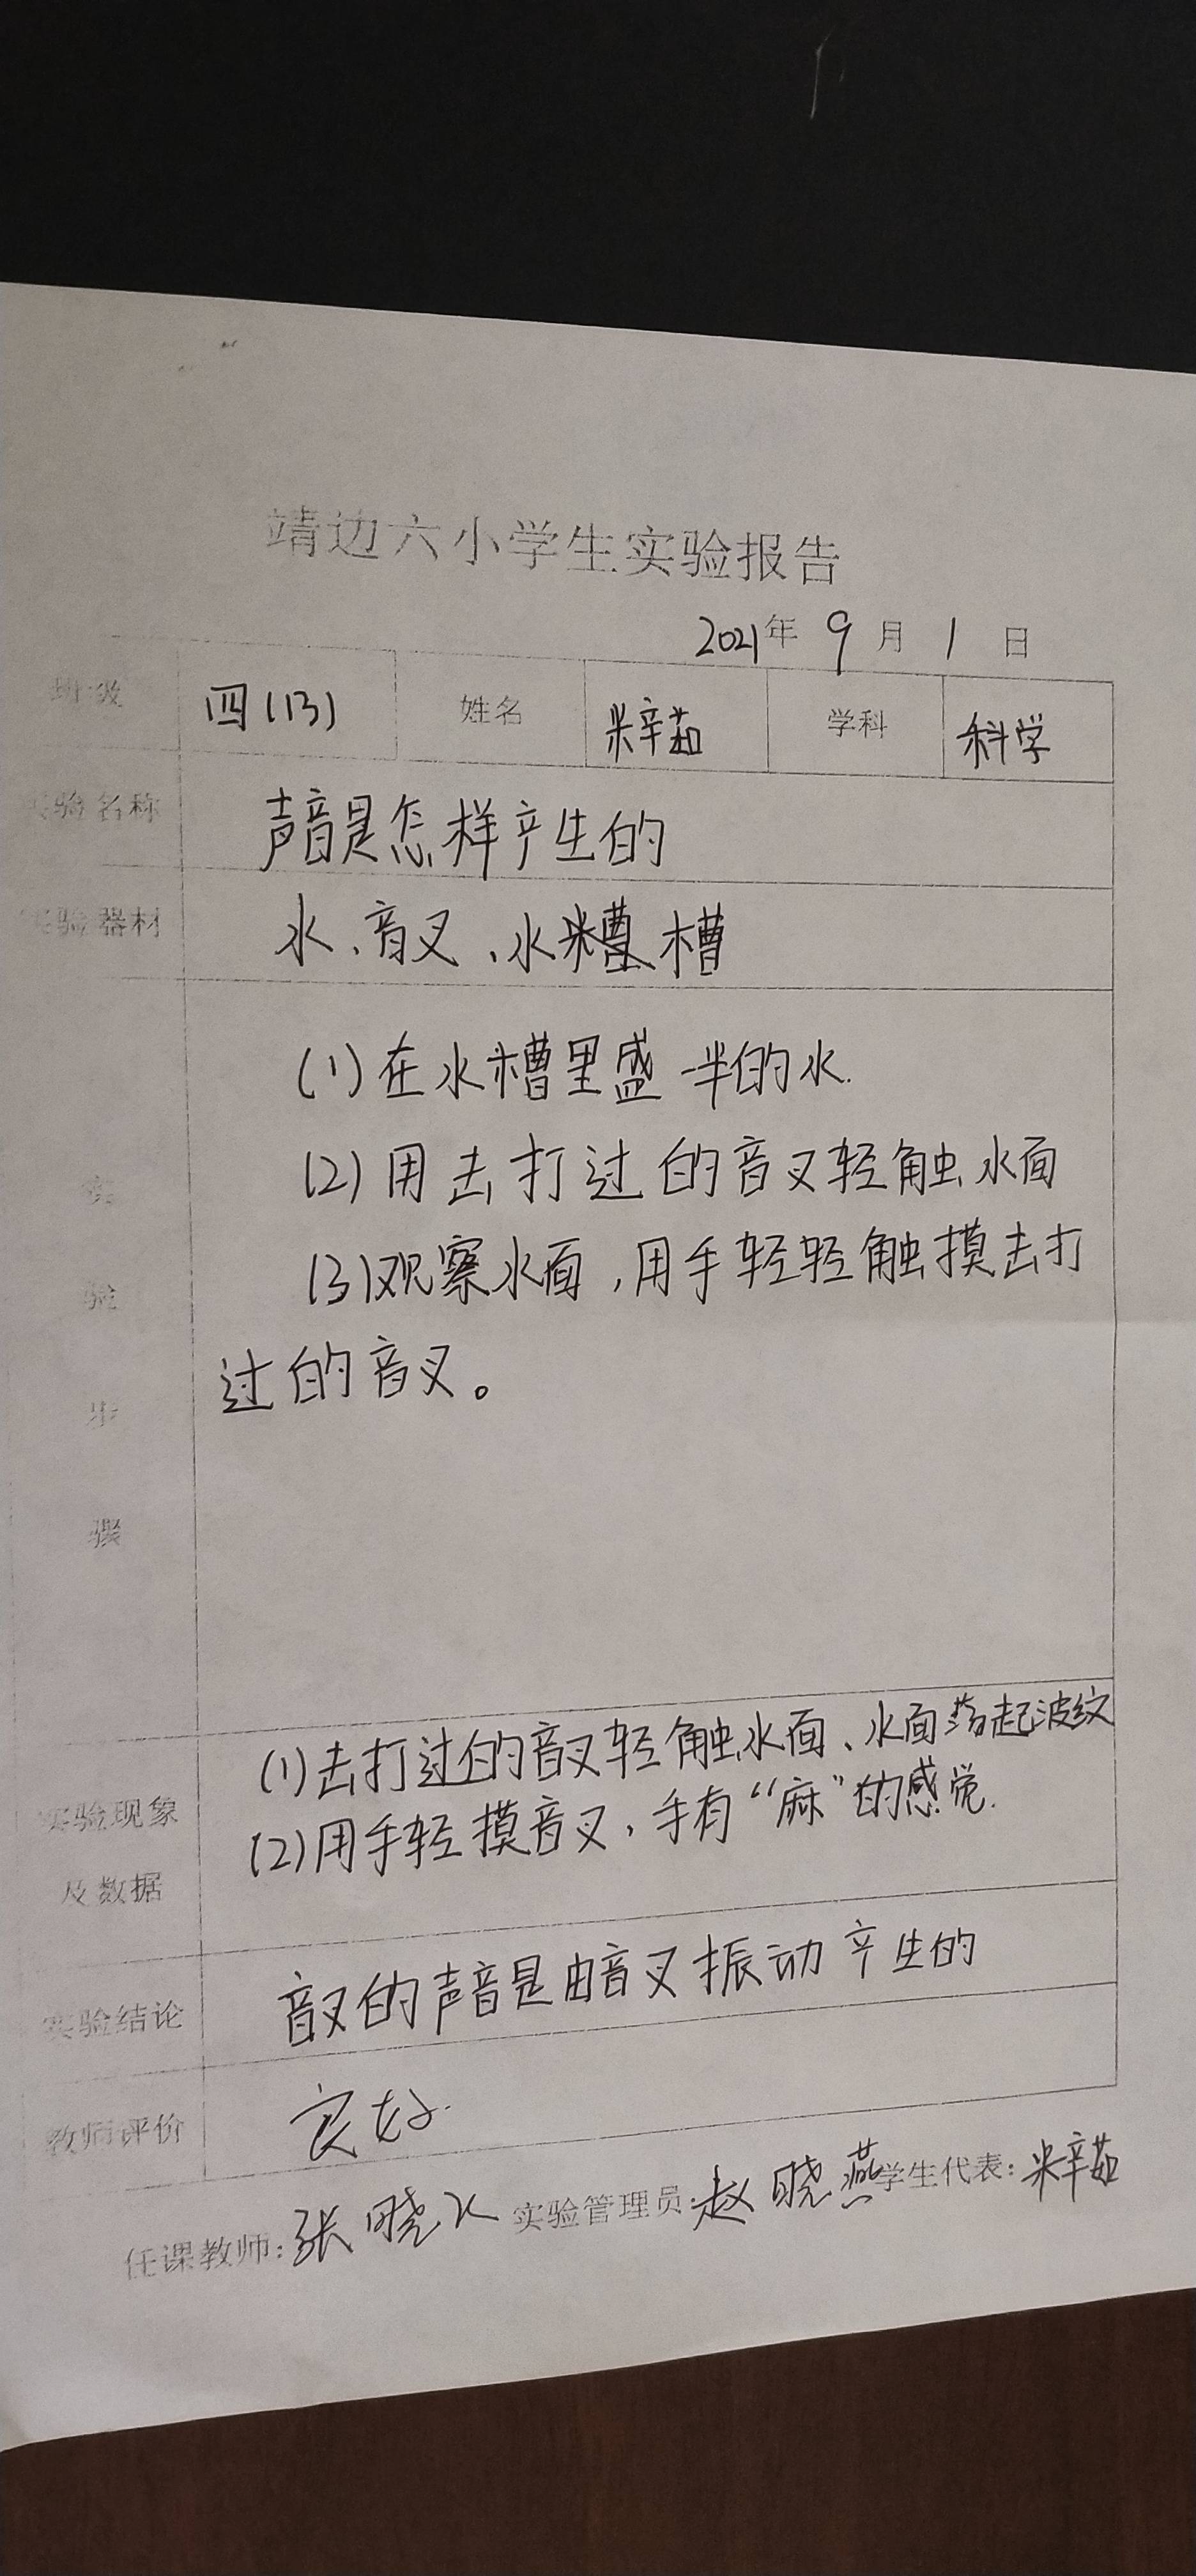 靖边六小学生实验报告
2021年 9 月 1 日
班级 四(13) 姓名 米辛茹 学科 科学
实验名称 声音是怎样产生的
实验器材 水、音叉、水槽
实验步骤
(1)在水槽里盛一半的水.
(2)用击打过的音叉轻触水面
(3)观察水面,用手轻轻触摸击打
过的音叉。
实验现象及数据
(1)击打过的音叉轻触水面、水面荡起波纹
(2)用手轻摸音叉,手有“麻”的感觉.
实验结论 音叉的声音是由音叉振动产生的
教师评价 良好.
任课教师:张晓 实验管理员:赵晓燕 学生代表:米辛茹